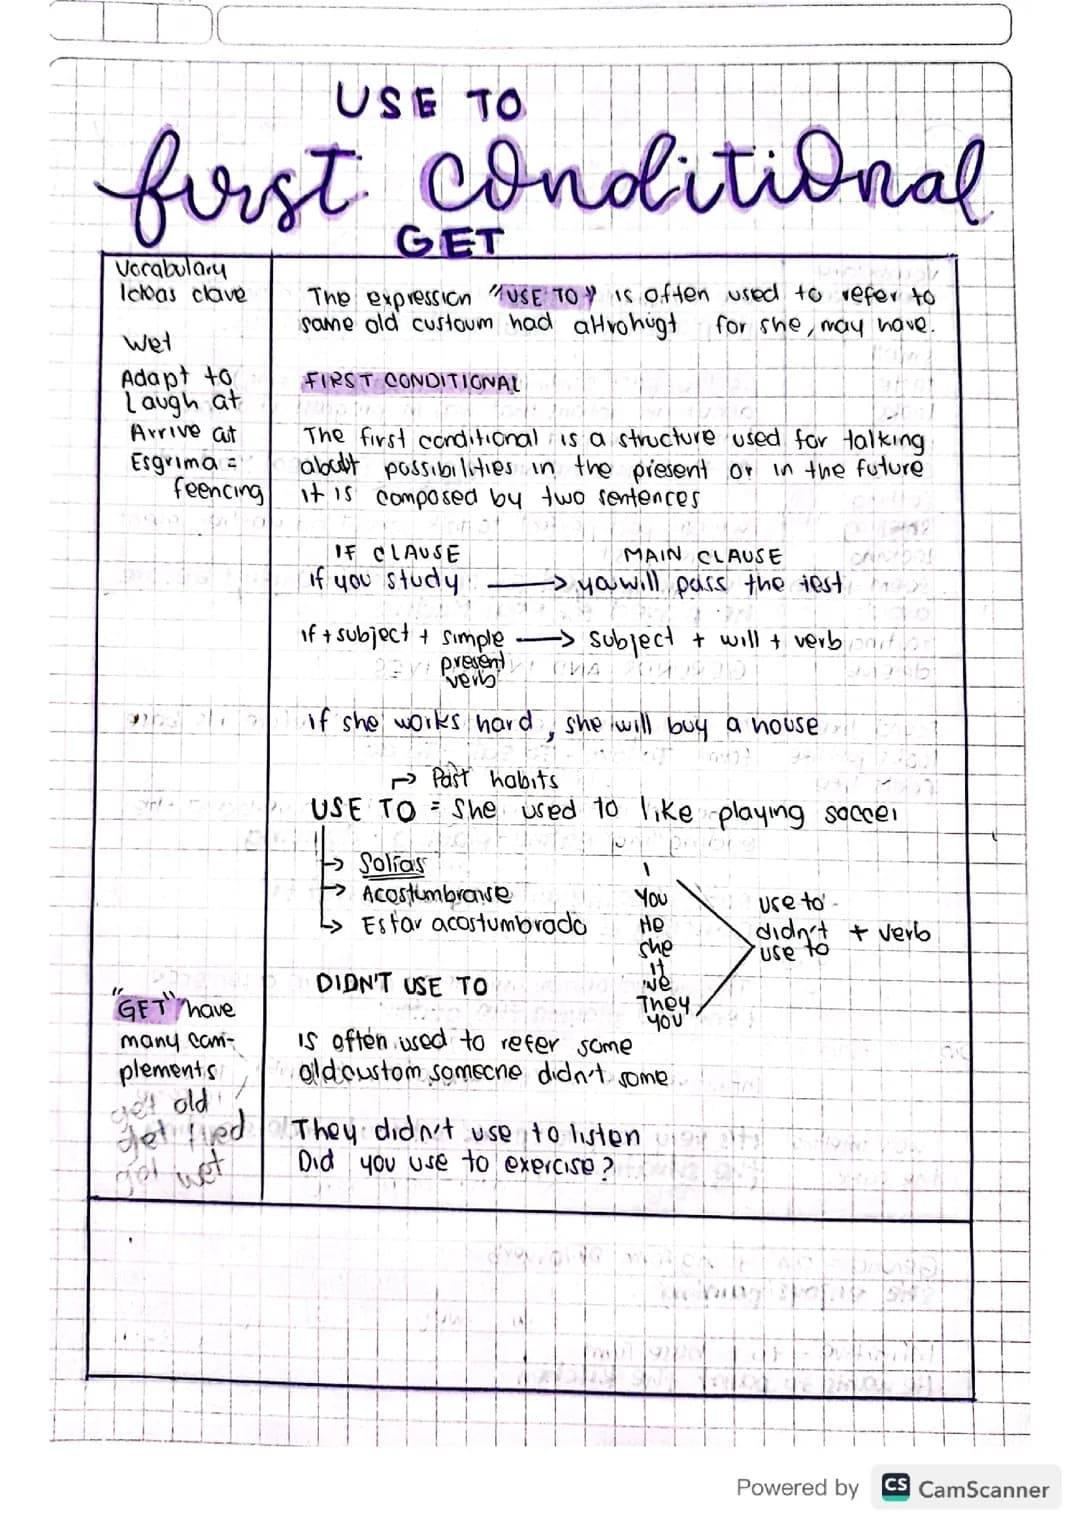 USE TO
first conditional
GET
Vocabulary
Ideas clave
Wet
Adapt to
Laugh at
Arrive at
Esgrima =
feencing
The expression "USE TO" is often used to refer to
some old custoum had for she, may have.
FIRST CONDITIONAL
The first conditional is a structure used for talking
about possibilities in the present or in the future
it is composed by two sentences
IF CLAUSE MAIN CLAUSE
if you study → you will pass the test
if + subject + simple → subject + will + verb
present
verb
if she works hard, she will buy a house
→ Past habits
USE TO = She used to like playing soccer
→ Solías
→ Acostumbrarse
→ Estar acostumbrado
I
You
He
she
it
we
They
you
use to
didn't + verb
use to
DIDN'T USE TO
is often used to refer some
old custom someone didn't some
They didn't use to listen
Did you use to exercise?
"GET" have
many com-
plements
get old
get tired
get wet
Powered by CS CamScanner